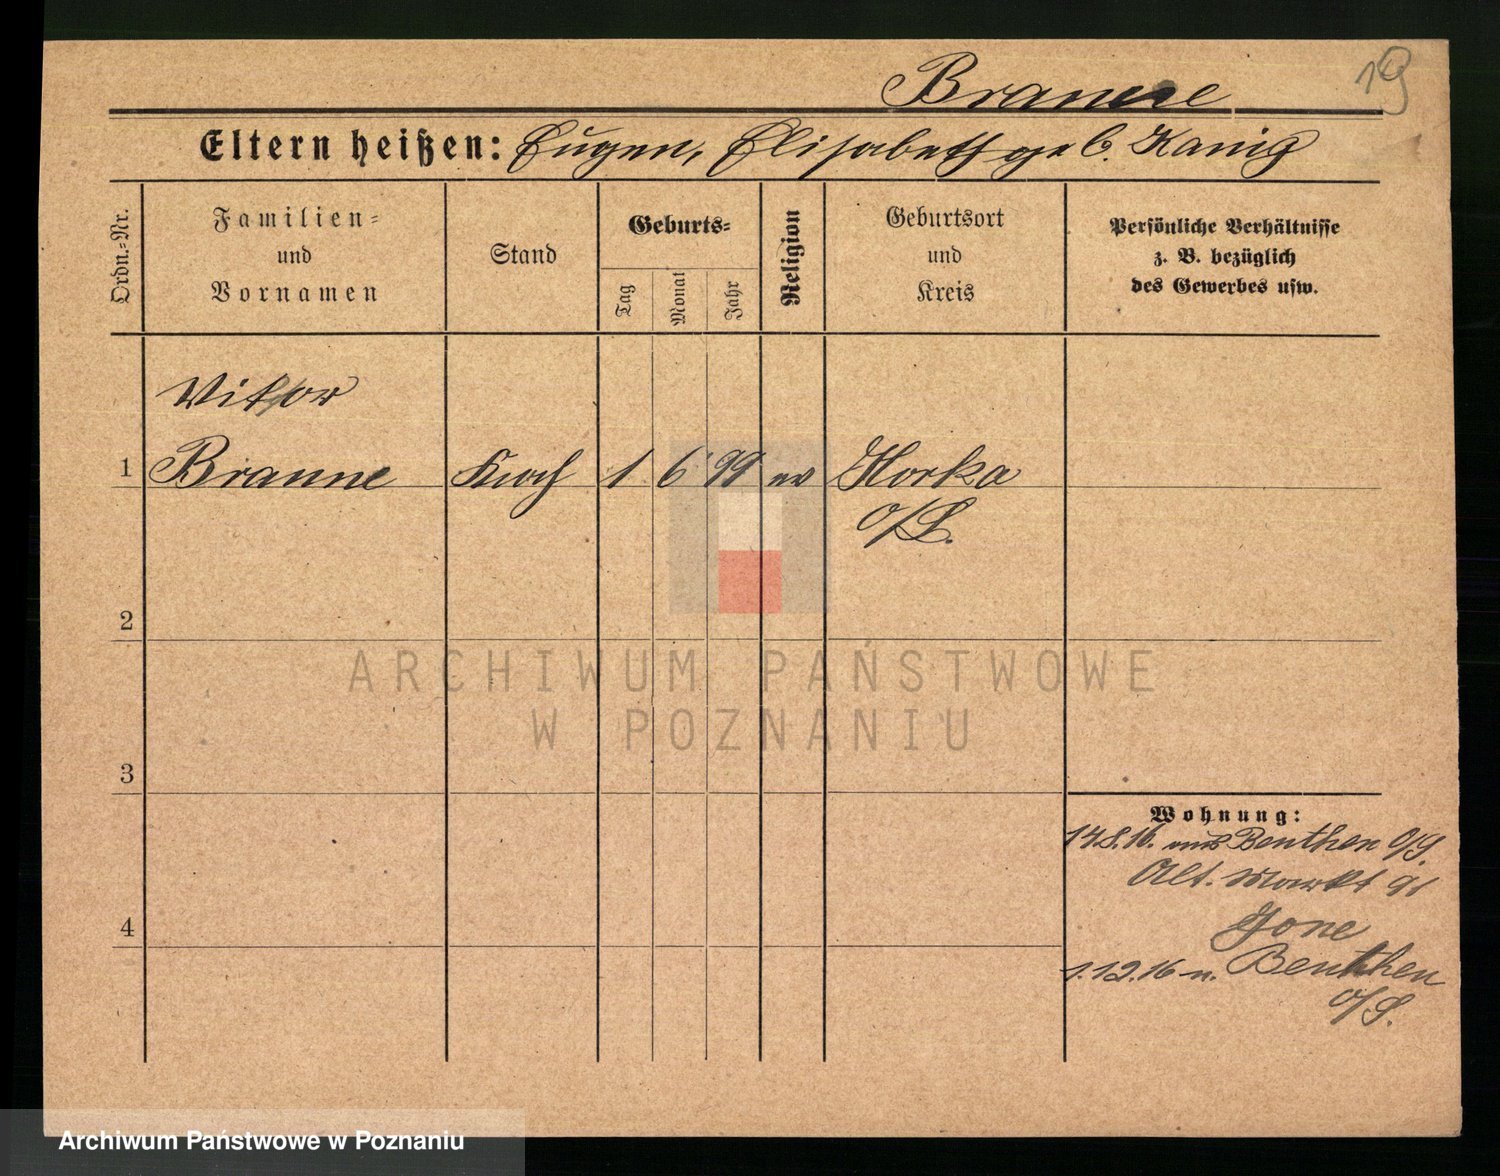 19
Braune
Eltern heißen: Eugen, Elisabeth geb. Kanig
Ordn.-Nr.
Familien-
und
Vornamen
Stand
Geburts-
Tag
Monat
Jahr
Religion
Geburtsort
und
Kreis
Persönliche Verhältnisse
z. B. bezüglich
des Gewerbes usw.
Viktor
1 Braune Koch 1 6 99 ev Horka
O/L.
2
3
4
Wohnung:
14.8.16. aus Beuthen O/S.
Alt. Markt 91
Beuthen
1.12.16 n.
O/S.
ARCHIWUM PAŃSTWOWE
W POZNANIU
Archiwum Państwowe w Poznaniu